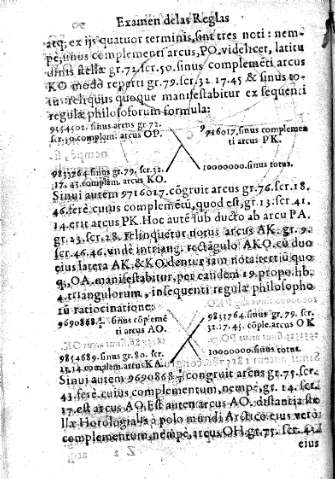 Examen de las Reglas
atq; ex ijs quatuor terminis, sunt tres noti: nem-
pe, sinus complementi arcus, PO. videlicet, latitu
dinis stellæ gr. 72. scr. 50. sinus complemẽti arcus
KO modo reperti gr. 79. scr. 32. 17. 45 & sinus to-
tu: reliquus quoque manifestabitur ex sequenti
regulæ philosoforum formula:
9554502. sinus arcus gr. 72.
scr. 50. complem. arcus OP.
9716017. sinus complemen
ti arcus PK.
9833764. sinus gr. 79. scr. 32.
17. 45. complem. arcus KO.
10000000. sinus totus.
Sinui autem 9716017. cõgruit arcus gr. 76. scr. 18.
46. ferè. cuius complemẽtũ, quod est, gr. 13: scr. 41.
14. erit arcus PK. Hoc autẽ sub ducto ab arcu PA.
gr. 23. scr. 28. relinquetur notus arcus AK. gr. 9.
scr. 46. 46. unde in triang. rectãgulo AKO. cũ duo
eius latera AK. & KO. dentur iam nota: tertiũ quo
q;, OA. manifestabitur, per eandem 19. propo. hb.
4. triangulorum, insequenti regulæ philosopho
rũ ratiocinatione:
9690868. sinus cõplemẽ
ti arcus AO.
9833764. sinus gr. 79. scr.
32. 17. 45. cõple. arcus OK
9854689. sinus gr. 80. scr.
13. 14. complem. arcus KA.
10000000. sinus totus.
Sinui autem 9690868. congruit arcus gr. 75. scr.
43. ferè. cuius complementum, nempè, gr. 14. scr.
17. est arcus AO. Est autem arcus AO. distantia ste
llæ Horologialis à polo mundi Arctico eius verò
complementum, nempè, arcus OH. gr. 75. scr. 43.
eius